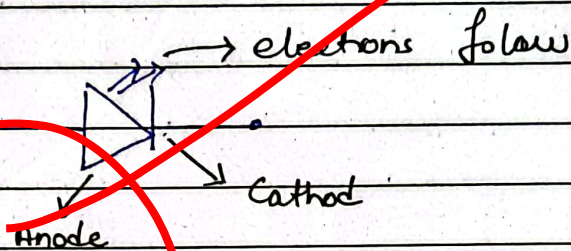 elections folow
Cathod
Anode